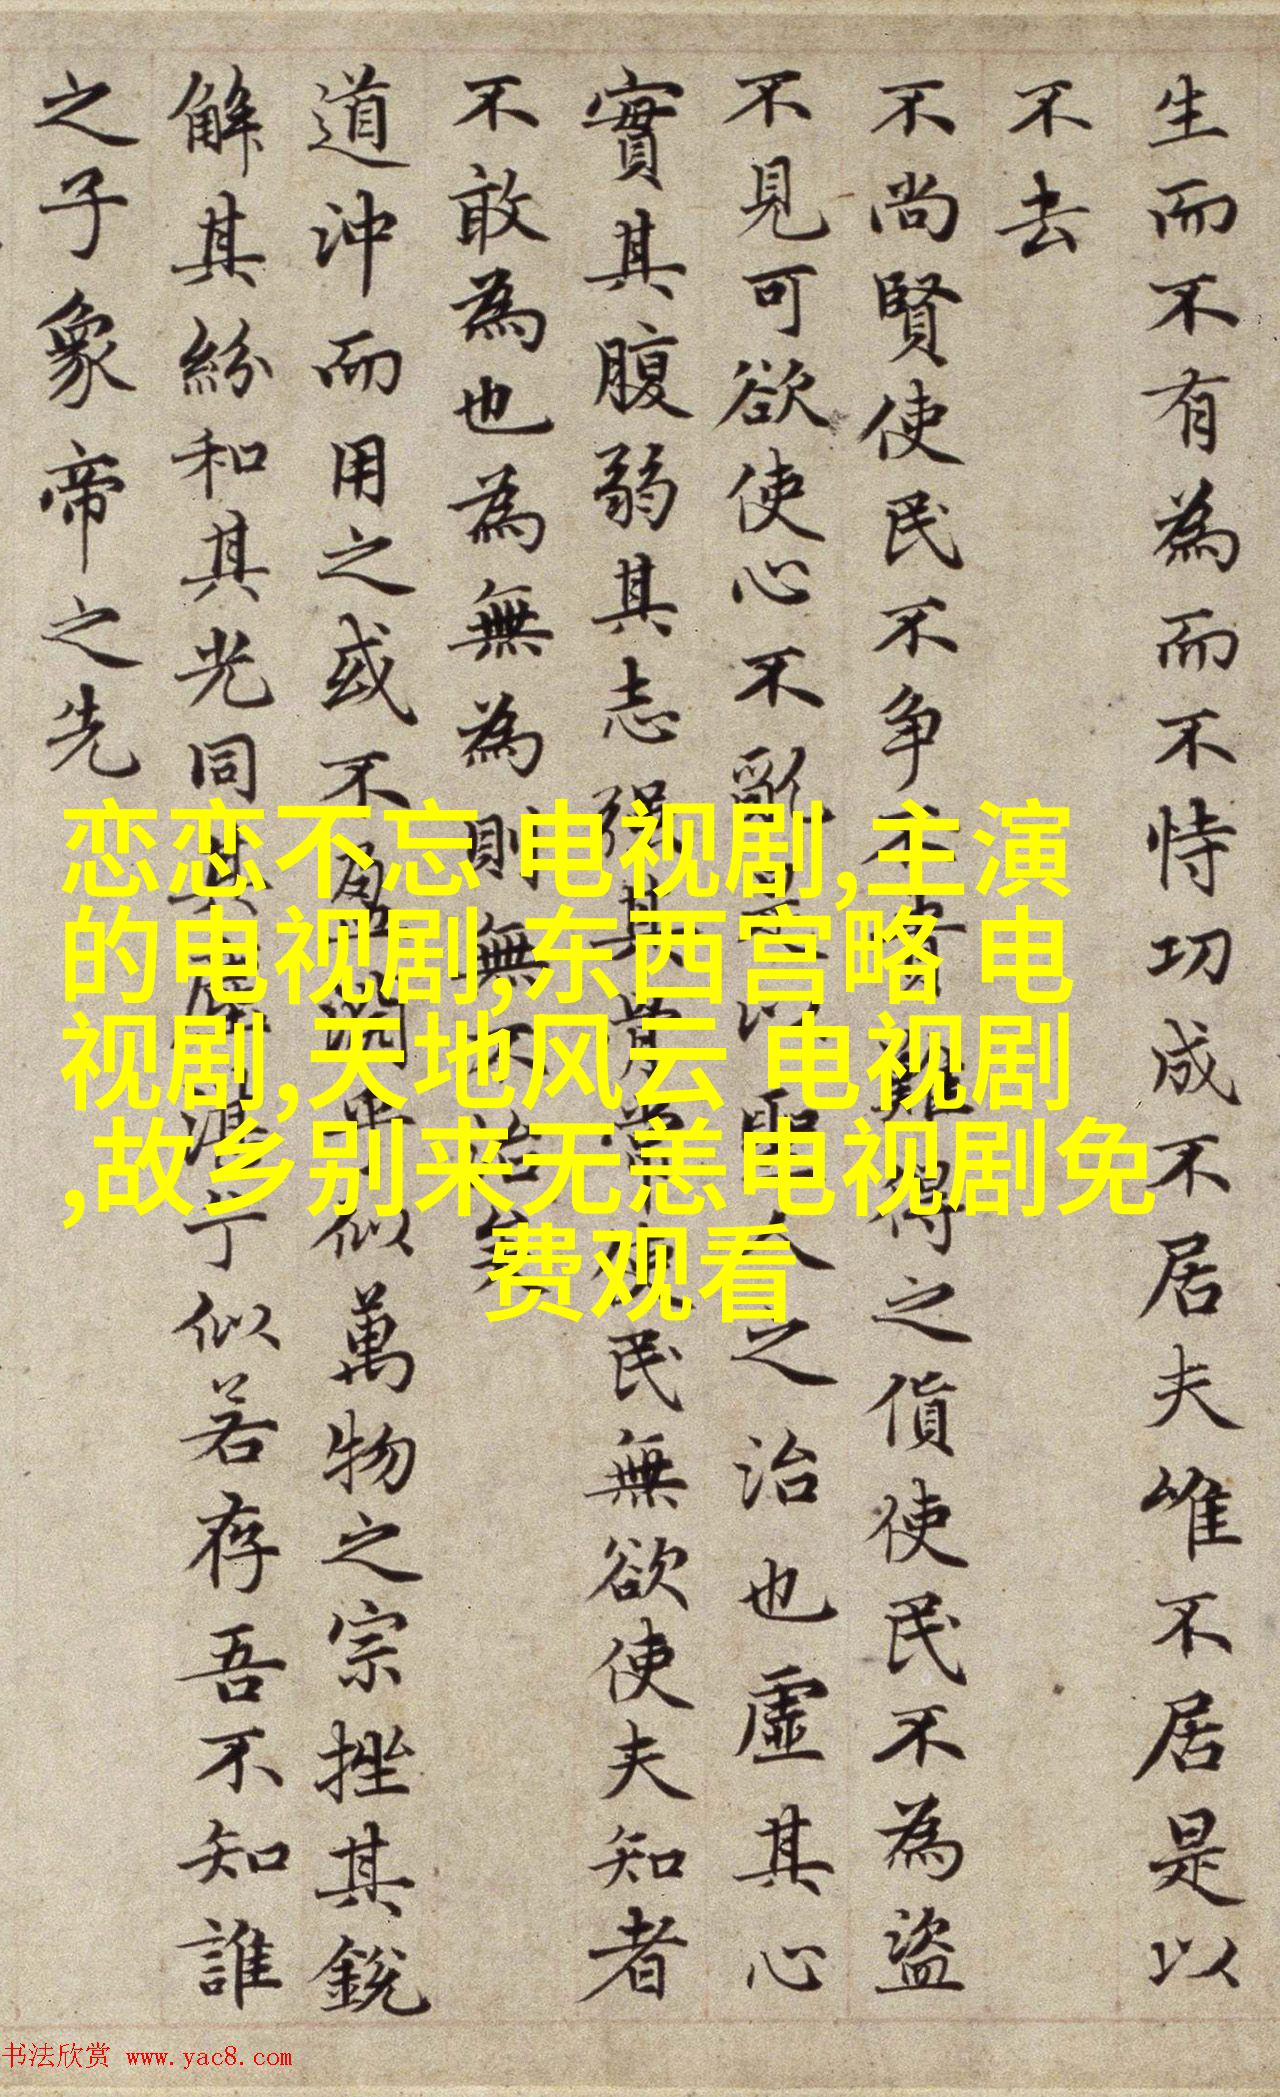 生而不有為而不恃功成不居夫唯不居是以
不去
不尚賢使民不争不貴難得之貨使民不為盜
不見可欲使心不亂是以聖人之治也虛其心
實其腹弱其志强其骨常使民無欲使夫知者
不敢為也為無為則無不治矣
道沖而用之或不盈淵乎似萬物之宗挫其銳
解其紛和其光同其塵湛兮似若存吾不知誰
之子象帝之先
恋恋不忘 电视剧,主演
的电视剧,东西宫略 电
视剧,天地风云 电视剧
,故乡别来无恙电视剧免
费观看
书法欣赏 www.yac8.com